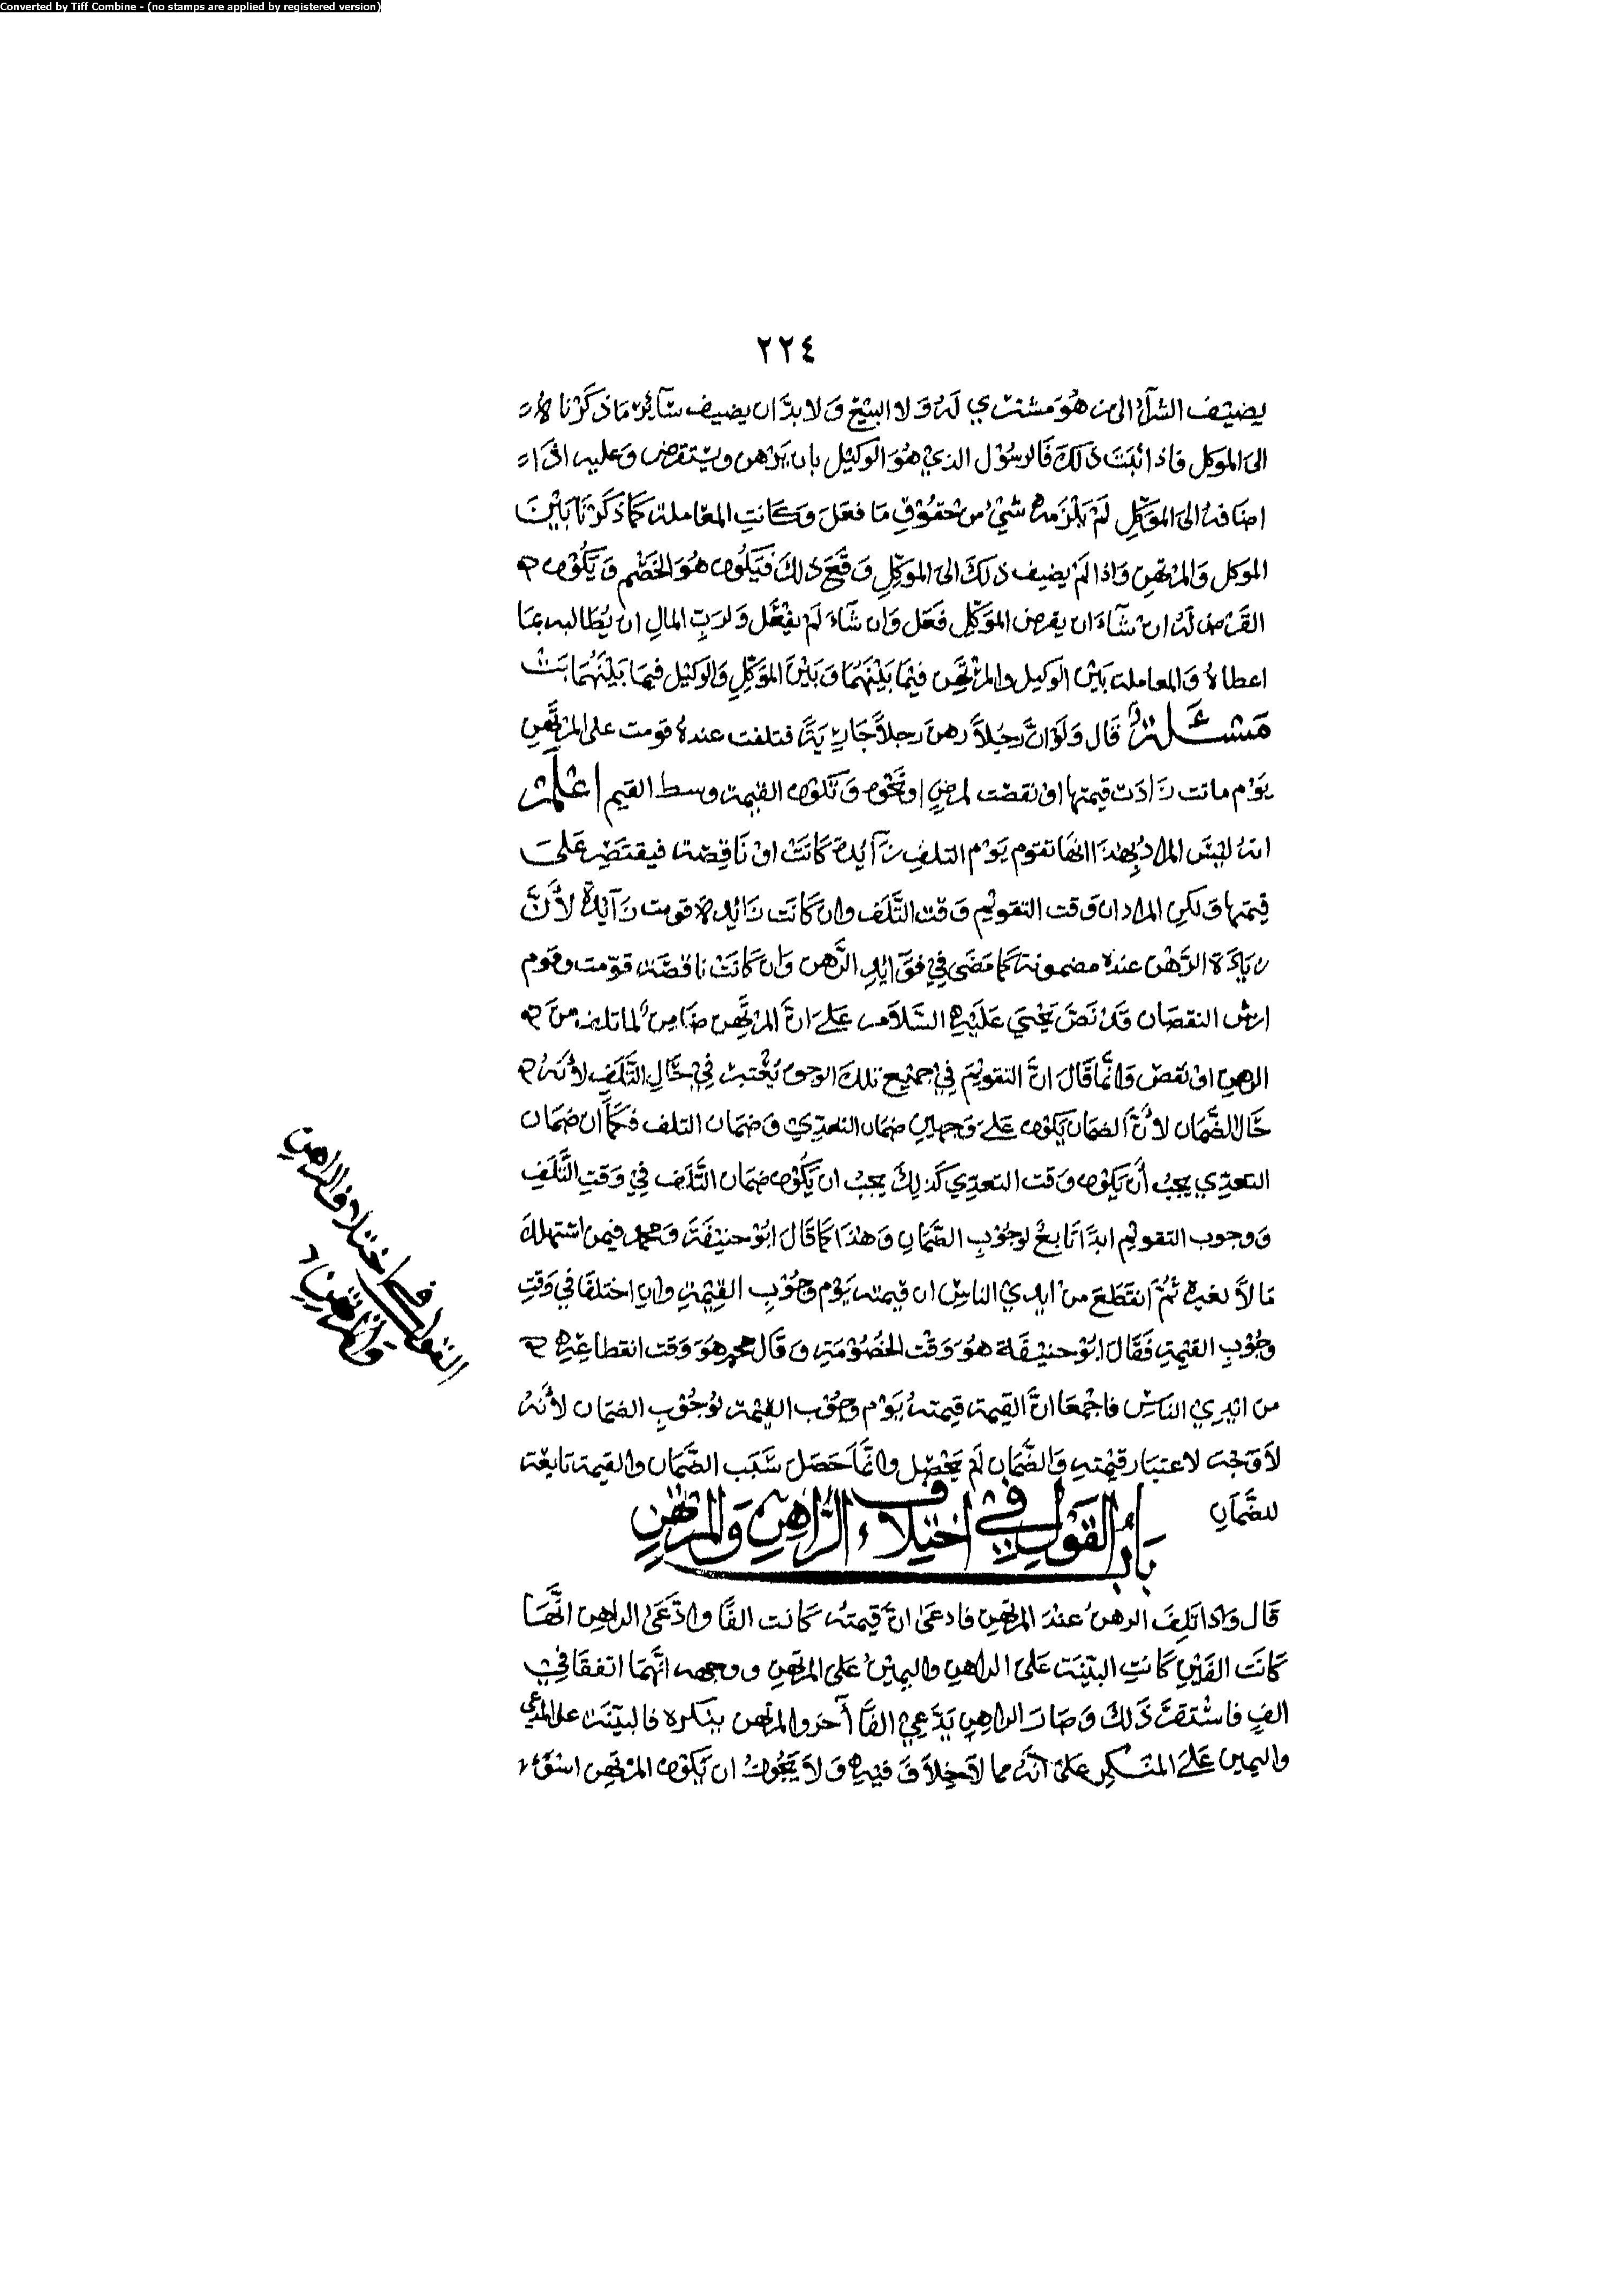 Converted by Tiff Combine - (no stamps are applied by registered version)
٢٢٤
يضيف الشرآء الى من هو مشتري له ولا البيع ولا بد ان يضيف سآئر ما ذكرنا لا
الى الموكل فاذا ثبت ذلك فالرسول الذي هو الوكيل بان يرهن ويستقرض وعليه اذا
اضافه الى الموكل لم يلزمه شيء من حقوق ما فعل وكانت المعاملة كما ذكرنا بين
الموكل والمرتهن واذا لم يضيف ذلك الى الموكل وقع ذلك فيكون هو الخصم ويكون
القرض له ان شآء ان يقرض الموكل فعل وان شآء لم يفعل ولرب المال ان يطالبه بما
اعطاه والمعاملة بين الوكيل والمرتهن فيما بينهما وبين الموكل والوكيل فيما بينهما بت
مسئلة قال ولو ان رجلاً رهن رجلاً جارية فتلفت عنده قومت على المرتهن
يوم ماتت زادت قيمتها او نقصت لمرض او نحوه وتكون القيمة وسط القيم اعلم
انه ليس المراد بهذا انها تقوم يوم التلف زآئدة كانت او ناقصة فيقتصر على
قيمتها ولكن المراد ان وقت التقويم وقت التلف وان كانت زائدة قومت زآئدة لأن
زيادة الرهن عنده مضمونة كما مضى في فوائد الرهن وان كانت ناقصة قومت وقوم
ارش النقصان وقد نص يحيى عليه السلام على ان المرتهن ضامن لما تلف من
الرهن او نقص وانما قال ان التقويم في جميع تلك الوجوه يعتبر في حال التلف لأنه
حال الضمان لأن الضمان يكون على وجهين ضمان التعدي وضمان التلف فكما ان ضمان
التعدي يجب أن يكون وقت التعدي كذلك يجب ان يكون ضمان التلف في وقت التلف
ووجوب التقويم ابدا تابع لوجوب الضمان وهذا كما قال ابو حنيفة ومحمد فيمن استهلك
مالاً لغيره ثم انقطع من ايدي الناس ان قيمته يوم وجوب القيمة وان اختلفا في وقت
وجوب القيمة فقال ابو حنيفة هو وقت الخصومة وقال محمد هو وقت انقطاعه
من ايدي الناس فاجمعا ان القيمة قيمته يوم وجوب القيمة لوجوب الضمان لأنه
لا وجه لاعتبار قيمته والضمان لم يحصل وانما حصل سبب الضمان والقيمة تابعة
للضمان
باب القول في اختلاف الراهن والمرتهن
قال واذا تلف الرهن عند المرتهن فادعى ان قيمته كانت الفا وادعى الراهن انها
كانت الفين كانت البينة على الراهن واليمين على المرتهن ووجهه انهما اتفقا في
الف فاستقر ذلك وصار الراهن يدعي الفا آخر والمرتهن ينكره فالبينة على المدعي
واليمين على المنكر على انه مما لا خلاف فيه ولا يجوز ان يكون المرتهن اسوء
القول في اختلاف الراهن
والمرتهن